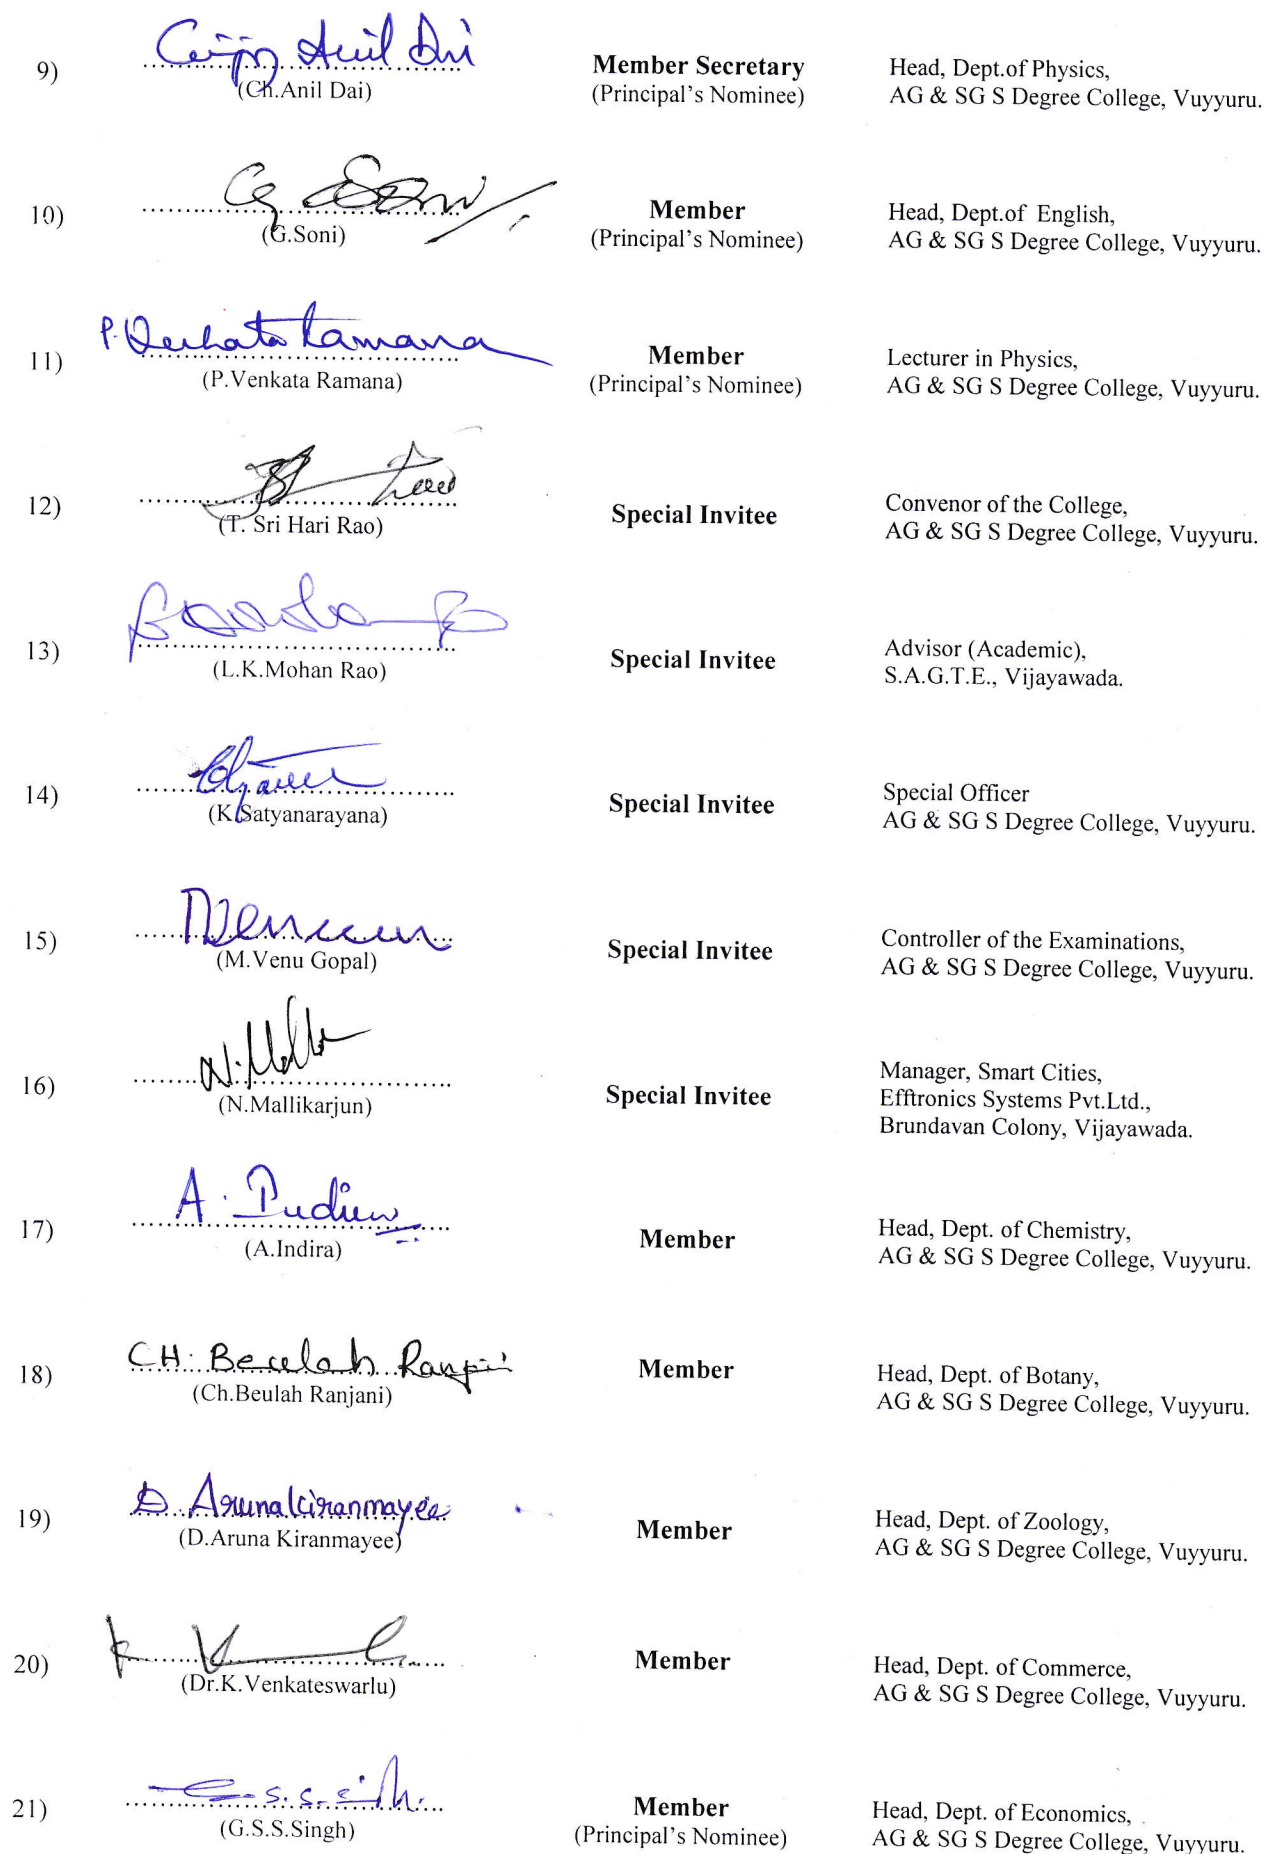 9)
Ch Anil Dai
(Ch.Anil Dai)
Member Secretary
(Principal's Nominee)
Head, Dept.of Physics,
AG & SG S Degree College, Vuyyuru.
10)
G Soni
(G.Soni)
Member
(Principal's Nominee)
Head, Dept.of English,
AG & SG S Degree College, Vuyyuru.
11)
P. Venkata Ramana
(P.Venkata Ramana)
Member
(Principal's Nominee)
Lecturer in Physics,
AG & SG S Degree College, Vuyyuru.
12)
(T. Sri Hari Rao)
Special Invitee
Convenor of the College,
AG & SG S Degree College, Vuyyuru.
13)
(L.K.Mohan Rao)
Special Invitee
Advisor (Academic),
S.A.G.T.E., Vijayawada.
14)
(K.Satyanarayana)
Special Invitee
Special Officer
AG & SG S Degree College, Vuyyuru.
15)
(M.Venu Gopal)
Special Invitee
Controller of the Examinations,
AG & SG S Degree College, Vuyyuru.
16)
(N.Mallikarjun)
Special Invitee
Manager, Smart Cities,
Efftronics Systems Pvt.Ltd.,
Brundavan Colony, Vijayawada.
17)
A. Indira
(A.Indira)
Member
Head, Dept. of Chemistry,
AG & SG S Degree College, Vuyyuru.
18)
CH. Beulah Ranjani
(Ch.Beulah Ranjani)
Member
Head, Dept. of Botany,
AG & SG S Degree College, Vuyyuru.
19)
D. Aruna kiranmayee
(D.Aruna Kiranmayee)
Member
Head, Dept. of Zoology,
AG & SG S Degree College, Vuyyuru.
20)
(Dr.K.Venkateswarlu)
Member
Head, Dept. of Commerce,
AG & SG S Degree College, Vuyyuru.
21)
G.S.S.Singh
(G.S.S.Singh)
Member
(Principal's Nominee)
Head, Dept. of Economics,
AG & SG S Degree College, Vuyyuru.